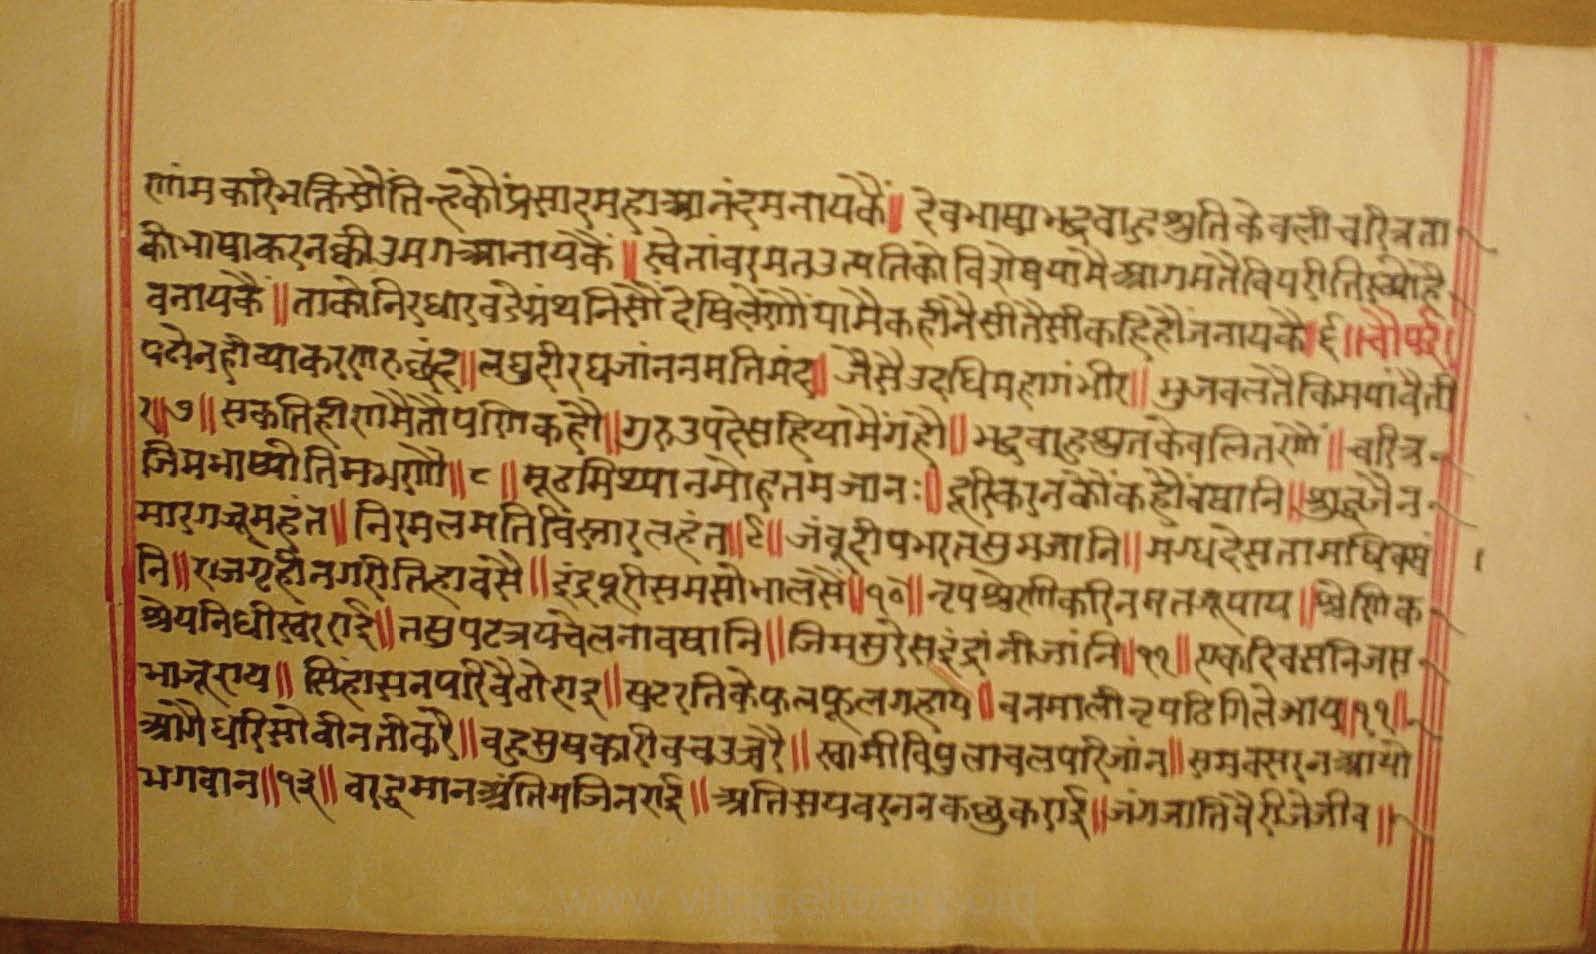 णांम करि भक्ति सौं तिन्हकौं प्रसार महा आनंद मनायकैं॥ देव भाषा भद्रवाहु श्रुतिकेवली चरित्र ता
की भाषा करन की उमग आनायकैं॥ स्वेतांवर मत उत्पति को विशेष यामै आगमतै विपरीति रूप्यो है
वनायकैं॥ ताको निरधार वडे ग्रंथनि सौं देषि लेणौं यामै कही नैसी तैसी कहि हौं जनायकै॥ ६॥ चौपई॥
पढो न हौ व्याकरण रु छंद॥ लघु दीरघ जांन न मति मंद॥ जैसै उदधि महा गंभीर॥ भुज वलतै किम पांवै ती
र॥ ७॥ सकति हीण मै तौ पणि कहौ॥ गुरु उपदेस हिया मैं गहौ॥ भद्रवाहु श्रुतकेवलि तणौं॥ चरित्र
जिम भाष्यो तिम भणौ॥ ८॥ मूढ मिथ्यान मोह तम जानः॥ दूरि करन कौं कहौं वषानि॥ श्रुद्ध जैन
मारग जू महंत॥ निरमल मति विस्तार लहंत॥ ९॥ जंवूदीप भरत सुभ जानि॥ मगध देस ता मधि वसं
नि॥ राजगृही नगरी तिहा वसै॥ इंद्रपुरी सम सोभा लसैं॥ १०॥ नृप श्रेणीक रिनमत रूपाय॥ श्रेणिक
श्रेय निधीस्वर राई॥ तसु पट त्रय चेलना वषानि॥ जिम सुरेस इंद्रांनी जांनि॥ ११॥ एक दिवस निज स
भा जू राय॥ सिंहासन परि वैठो राइ॥ षुट रति के फल फूल गहाय॥ वनमाली नृप ढिगि ले आय॥ ११॥
आगै धरि सो वीनती करै॥ वहु सुषकारी वच उचरै॥ स्वामी विपुलाचल परि जांन॥ समवसरन आयो
भगवान॥ १३॥ वर्द्धमान अंतिम जिनराई॥ अतिसय वरनन कछु कराई॥ जंग जाति वैरी जे जीव॥
www.vitragelibrary.org